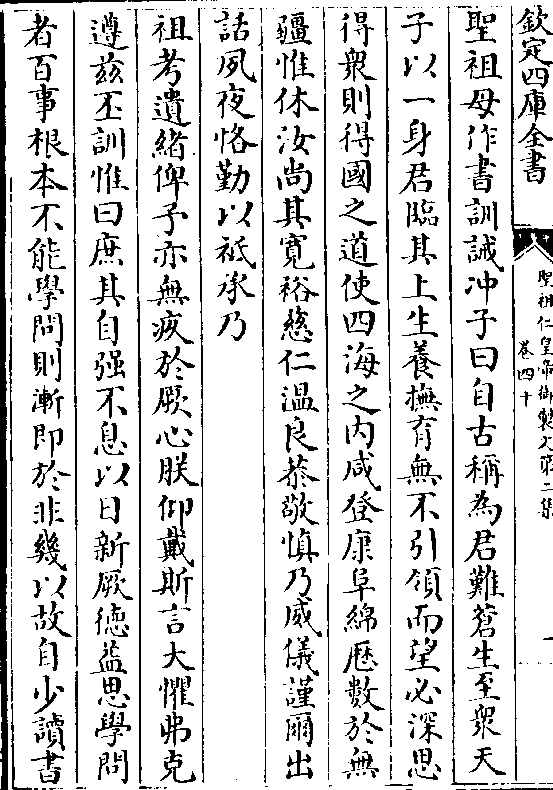 欽定四庫全書
聖祖仁皇帝御製文第二集
卷四十
一
聖祖母作書訓誡冲子曰自古稱為君難蒼生至衆天
子以一身君臨其上生養撫有無不引領而望必深思
得衆則得國之道使四海之内咸登康阜綿歴數於無
疆惟休汝尚其寛裕慈仁温良恭敬慎乃威儀謹爾出
話夙夜恪勤以祗承乃
祖考遺緒俾予亦無疚於厥心朕仰戴斯言大懼弗克
遵兹丕訓惟曰庶其自强不息以日新厥徳益思學問
者百事根本不能學問則漸即於非幾以故自少讀書